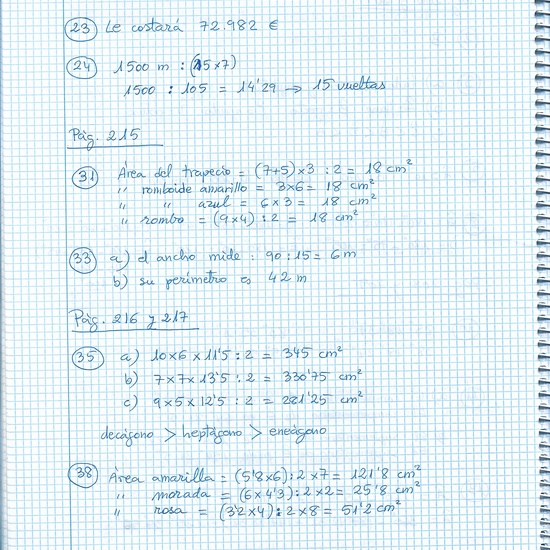 23 Le costará 72.982 €
24 1500 m : (15 x 7)
1500 : 105 = 14'29 → 15 vueltas
Pág. 215
31 Área del trapecio = (7+5) x 3 : 2 = 18 cm²
" romboide amarillo = 3x6 = 18 cm²
" " azul = 6 x 3 = 18 cm²
" rombo = (9 x 4) : 2 = 18 cm²
33 a) el ancho mide : 90 : 15 = 6 m
b) su perímetro es 42 m
Pág. 216 y 217
35 a) 10 x 6 x 11'5 : 2 = 345 cm²
b) 7 x 7 x 13'5 : 2 = 330'75 cm²
c) 9 x 5 x 12'5 : 2 = 281'25 cm²
decágono > heptágono > eneágono
38 Área amarilla = (5'8 x 6) : 2 x 7 = 121'8 cm²
" morada = (6 x 4'3) : 2 x 2 = 25'8 cm²
" rosa = (3'2 x 4) : 2 x 8 = 51'2 cm²